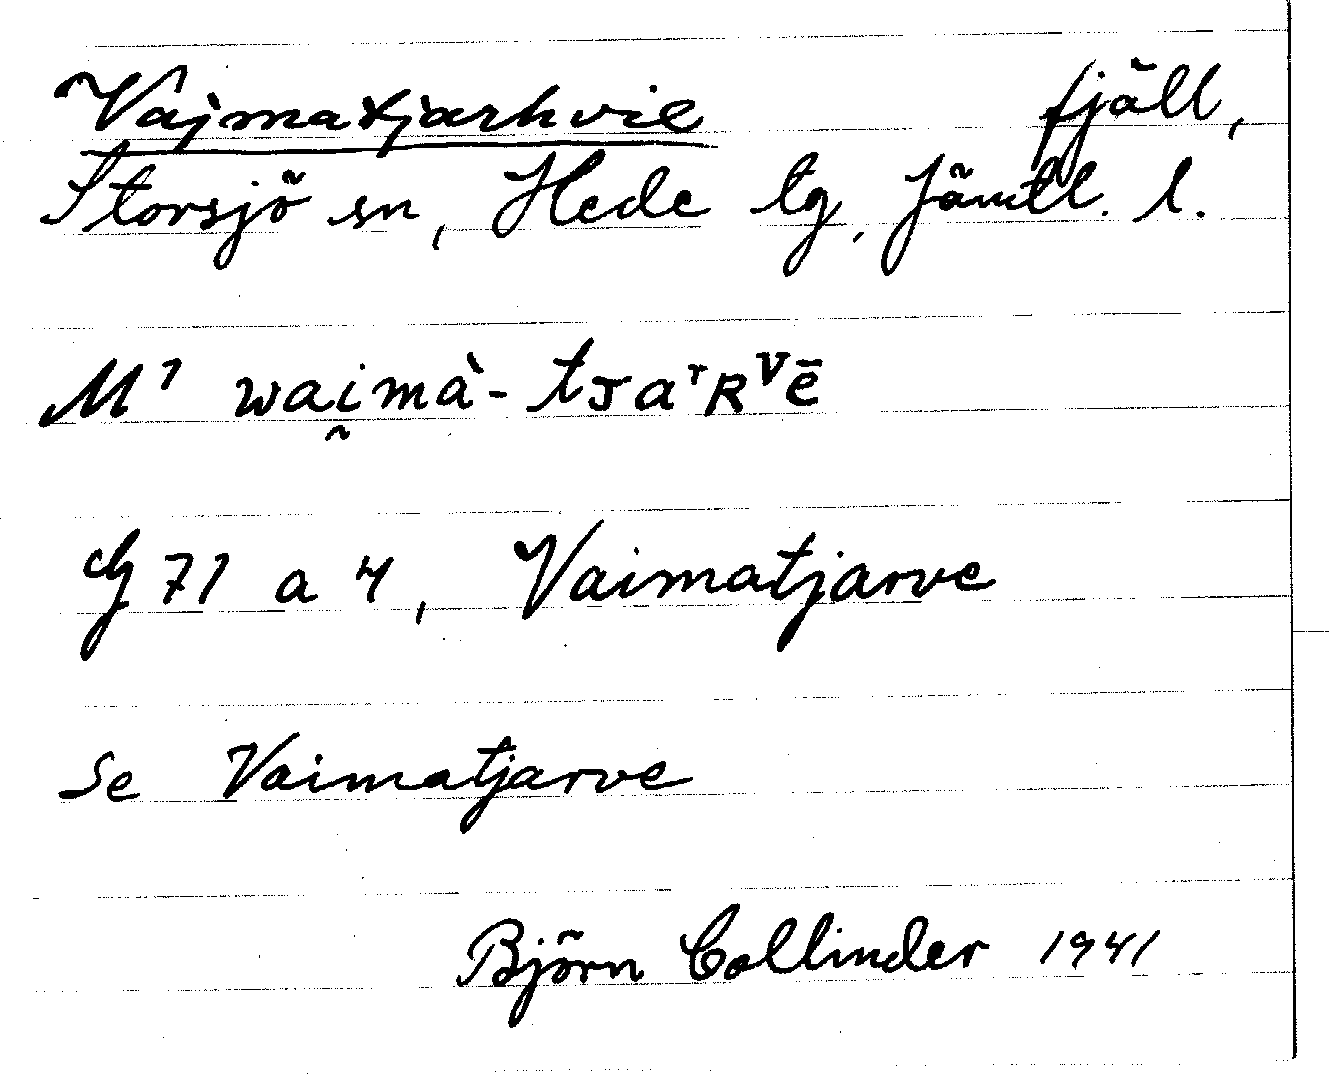 Vajmatjarhvie fjäll,
Storsjö sn, Hede tg, Jämtl. l.
M1 wai̯mà-tᴊaʳʀᵛē
G 71 a 4, Vaimatjarve
Se Vaimatjarve
Björn Collinder 1941